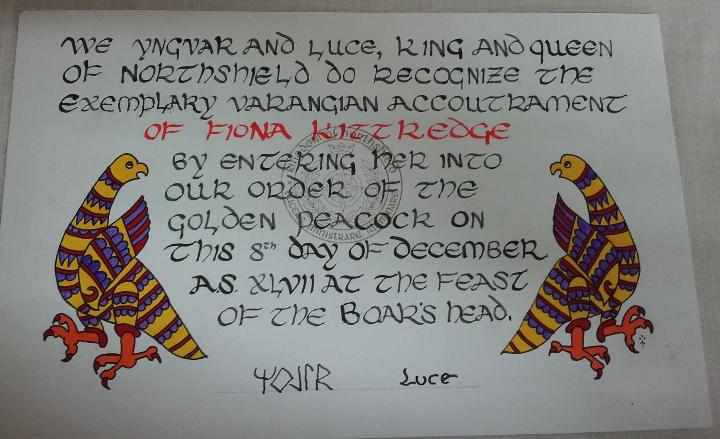 We Yngvar and Luce, King and Queen
of Northshield do recognize the
exemplary Varangian accoutrament
of Fiona Kittredge
by entering her into
our Order of the
Golden Peacock on
this 8th day of December
A.S. XLVII at the Feast
of the Boar's Head.
Luce